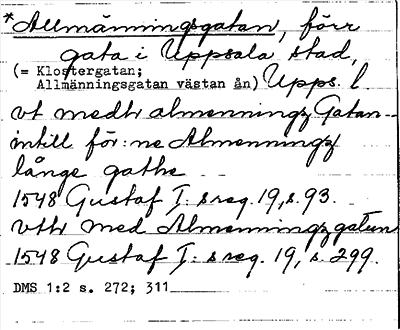 *Allmänningsgatan, förr
gata i Uppsala stad,
(= Klostergatan;
Allmänningsgatan västan ån) Upps. l.
vt medh almenningz Gatan --
intill för:ne Almenningz
långe gathe
1548 Gustaf I: s reg. 19, s. 93.
vthr med Almenningz gatun
1548 Gustaf I: s reg. 19, s. 299.
DMS 1:2 s. 272; 311